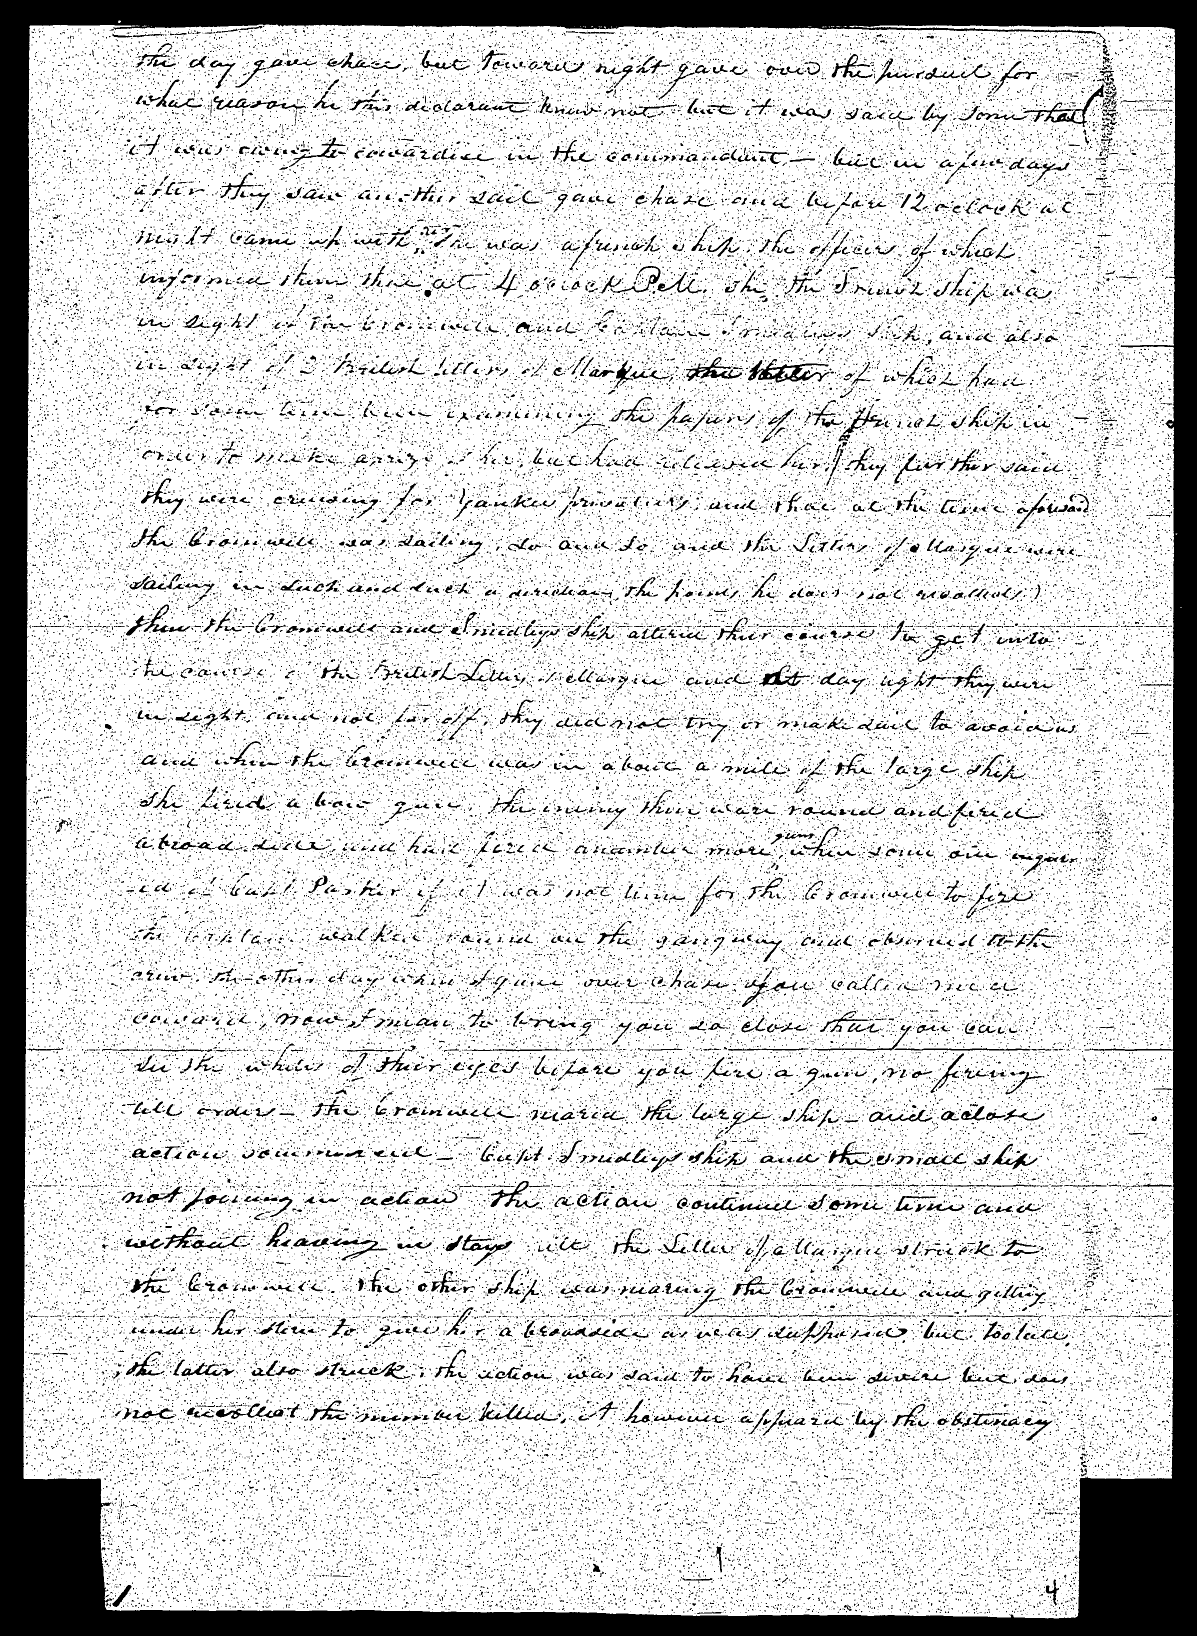 the day gave chace, but toward night gave over the pursuit for
what reason he this declarant know not but it was said by some that
it was owing to cowardise in the commandant — but in a few days
after they saw another sail gave chase and before 12 oclock at
night came up with her She was a french ship, the officers of which
informed them that at 4 oclock P.M. she the French ship was
in sight of the Cromwell and Captain Smedleys ship, and also
in sight of 2 British letters of Marque, the latter of which had
for some time been examining the papers of the French ship in
order to make a prize of her, but had released her, they further said
they were cruising for Yankee privateers, and that at the time aforesaid
the Cromwell was sailing, so and so and the Letters of Marque were
sailing in such and such a direction, the points he does not recollect)
then the Cromwell and Smedleys ship altered their course to get into
the course of the British Letters of Marque and at day light they were
in sight, and not far off, they did not try or make sail to avoid us
and when the Cromwell was in about a mile of the large ship
she fired a bow gun. the enemy then ware round and fired
a broad side and had fired a number more guns when some one inquir
-ed of Capt Parker if it was not time for the Cromwell to fire
the Captain walked round on the gangway and observed to the
crew. the other day when I gave over chase you called me a
coward, now I mean to bring you so close that you can
see the whites of their eyes before you fire a gun, no firing
till orders — the Cromwell neared the large ship — and a close
action commenced — Capt. Smedleys ship and the small ship
not joining in action the action continued some time and
without heaving in stays till the Letter of Marque struck to
the Cromwell. the other ship was nearing the Cromwell and getting
under her stern to give her a broadside as was supposed but too late,
the latter also struck. the action was said to have been severe but does
not recollect the number killed, it however appeard by the obstinacy
4